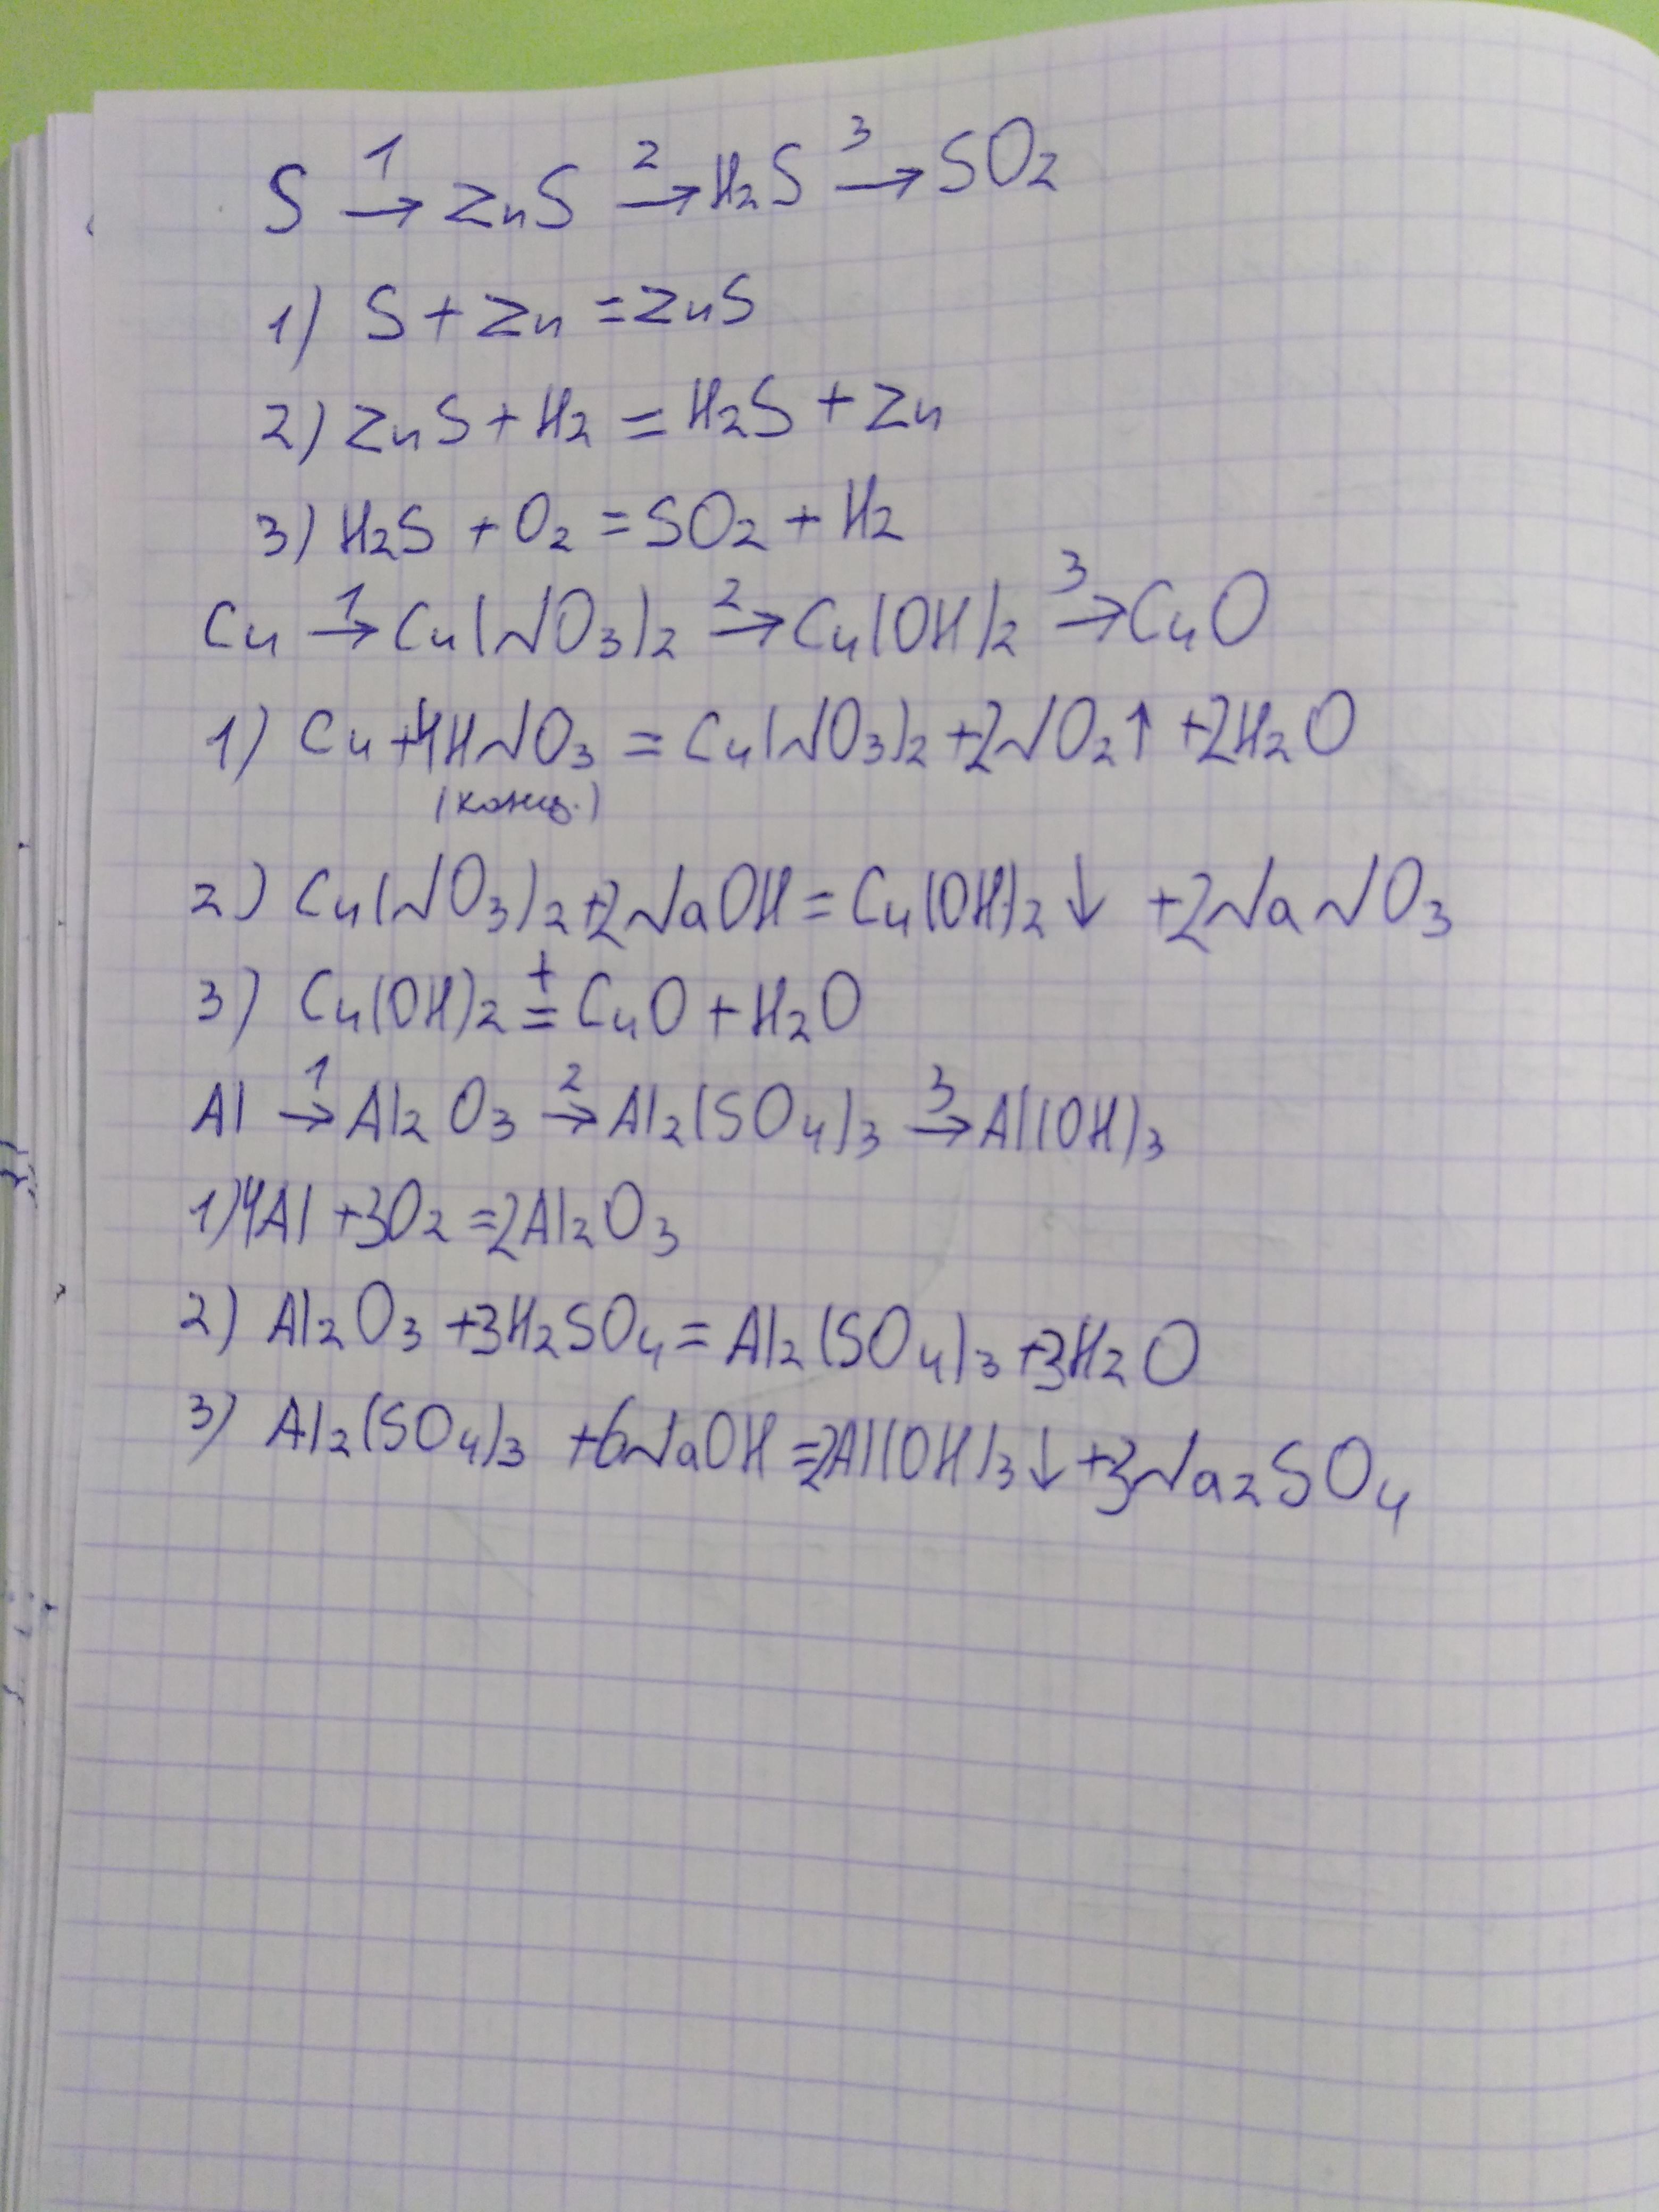 S →¹ ZnS →² H₂S →³ SO₂
1) S + Zn = ZnS
2) ZnS + H₂ = H₂S + Zn
3) H₂S + O₂ = SO₂ + H₂
Cu →¹ Cu(NO₃)₂ →² Cu(OH)₂ →³ CuO
1) Cu + 4HNO₃ = Cu(NO₃)₂ + 2NO₂↑ + 2H₂O
(конц.)
2) Cu(NO₃)₂ + 2NaOH = Cu(OH)₂↓ + 2NaNO₃
3) Cu(OH)₂ =ᵗ CuO + H₂O
Al →¹ Al₂O₃ →² Al₂(SO₄)₃ →³ Al(OH)₃
1) 4Al + 3O₂ = 2Al₂O₃
2) Al₂O₃ + 3H₂SO₄ = Al₂(SO₄)₃ + 3H₂O
3) Al₂(SO₄)₃ + 6NaOH = 2Al(OH)₃↓ + 3Na₂SO₄